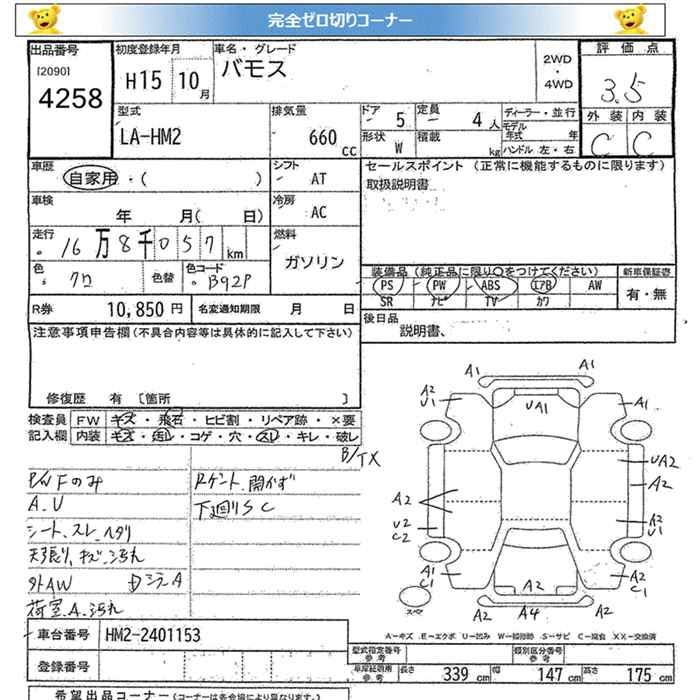 完全ゼロ切りコーナー
出品番号
[2090]
4258
初度登録年月
H15 10月
車名・グレード
バモス
2WD
・
4WD
評価点
3.5
型式
LA-HM2
排気量
660 cc
ドア
5
定員
4人
形状
W
積載
kg
ディーラー・並行
モデル年式 年
ハンドル 左・右
外装 内装
C C
車歴
自家用・( )
シフト
AT
セールスポイント (正常に機能するものに限ります)
取扱説明書
車検
年 月( 日)
冷房
AC
走行
16万8千057km
燃料
ガソリン
色
クロ
色替
色コード
B92P
装備品 (純正品に限り○をつけてください)
新車保証書
PS PW ABS エアB AW
SR ナビ TV カワ
有・無
R券 10,850円
名変通知期限 月 日
後日品
説明書、
注意事項申告欄(不具合内容等は具体的に記入して下さい)
修復歴 有 [箇所 ]
検査員
記入欄
FW キズ・飛石・ヒビ割・リペア跡・×要
内装 キズ・汚レ・コゲ・穴・スレ・キレ・破レ
B/TX
P/W Fのみ
A.U
シート.スレ.ヘタリ
天張り.キズ.汚れ
外AW
荷室.A.汚れ
Rゲート.開かず
下廻りSC
A1
A1
A2
U1
UA1
A1
UA2
A2
A2
U2
C2
A2
U1
A1
C1
A2
A2
C1
A2
A4
A2
スペア
A-キズ E-エクボ U-凹み W-補修跡 S-サビ C-腐食 XX-交換済
車台番号 HM2-2401153
登録番号
型式指定番号
参考
類別区分番号
参考
車庫証明用
参考
長さ 339 cm 幅 147 cm 高さ 175 cm
希望出品コーナー